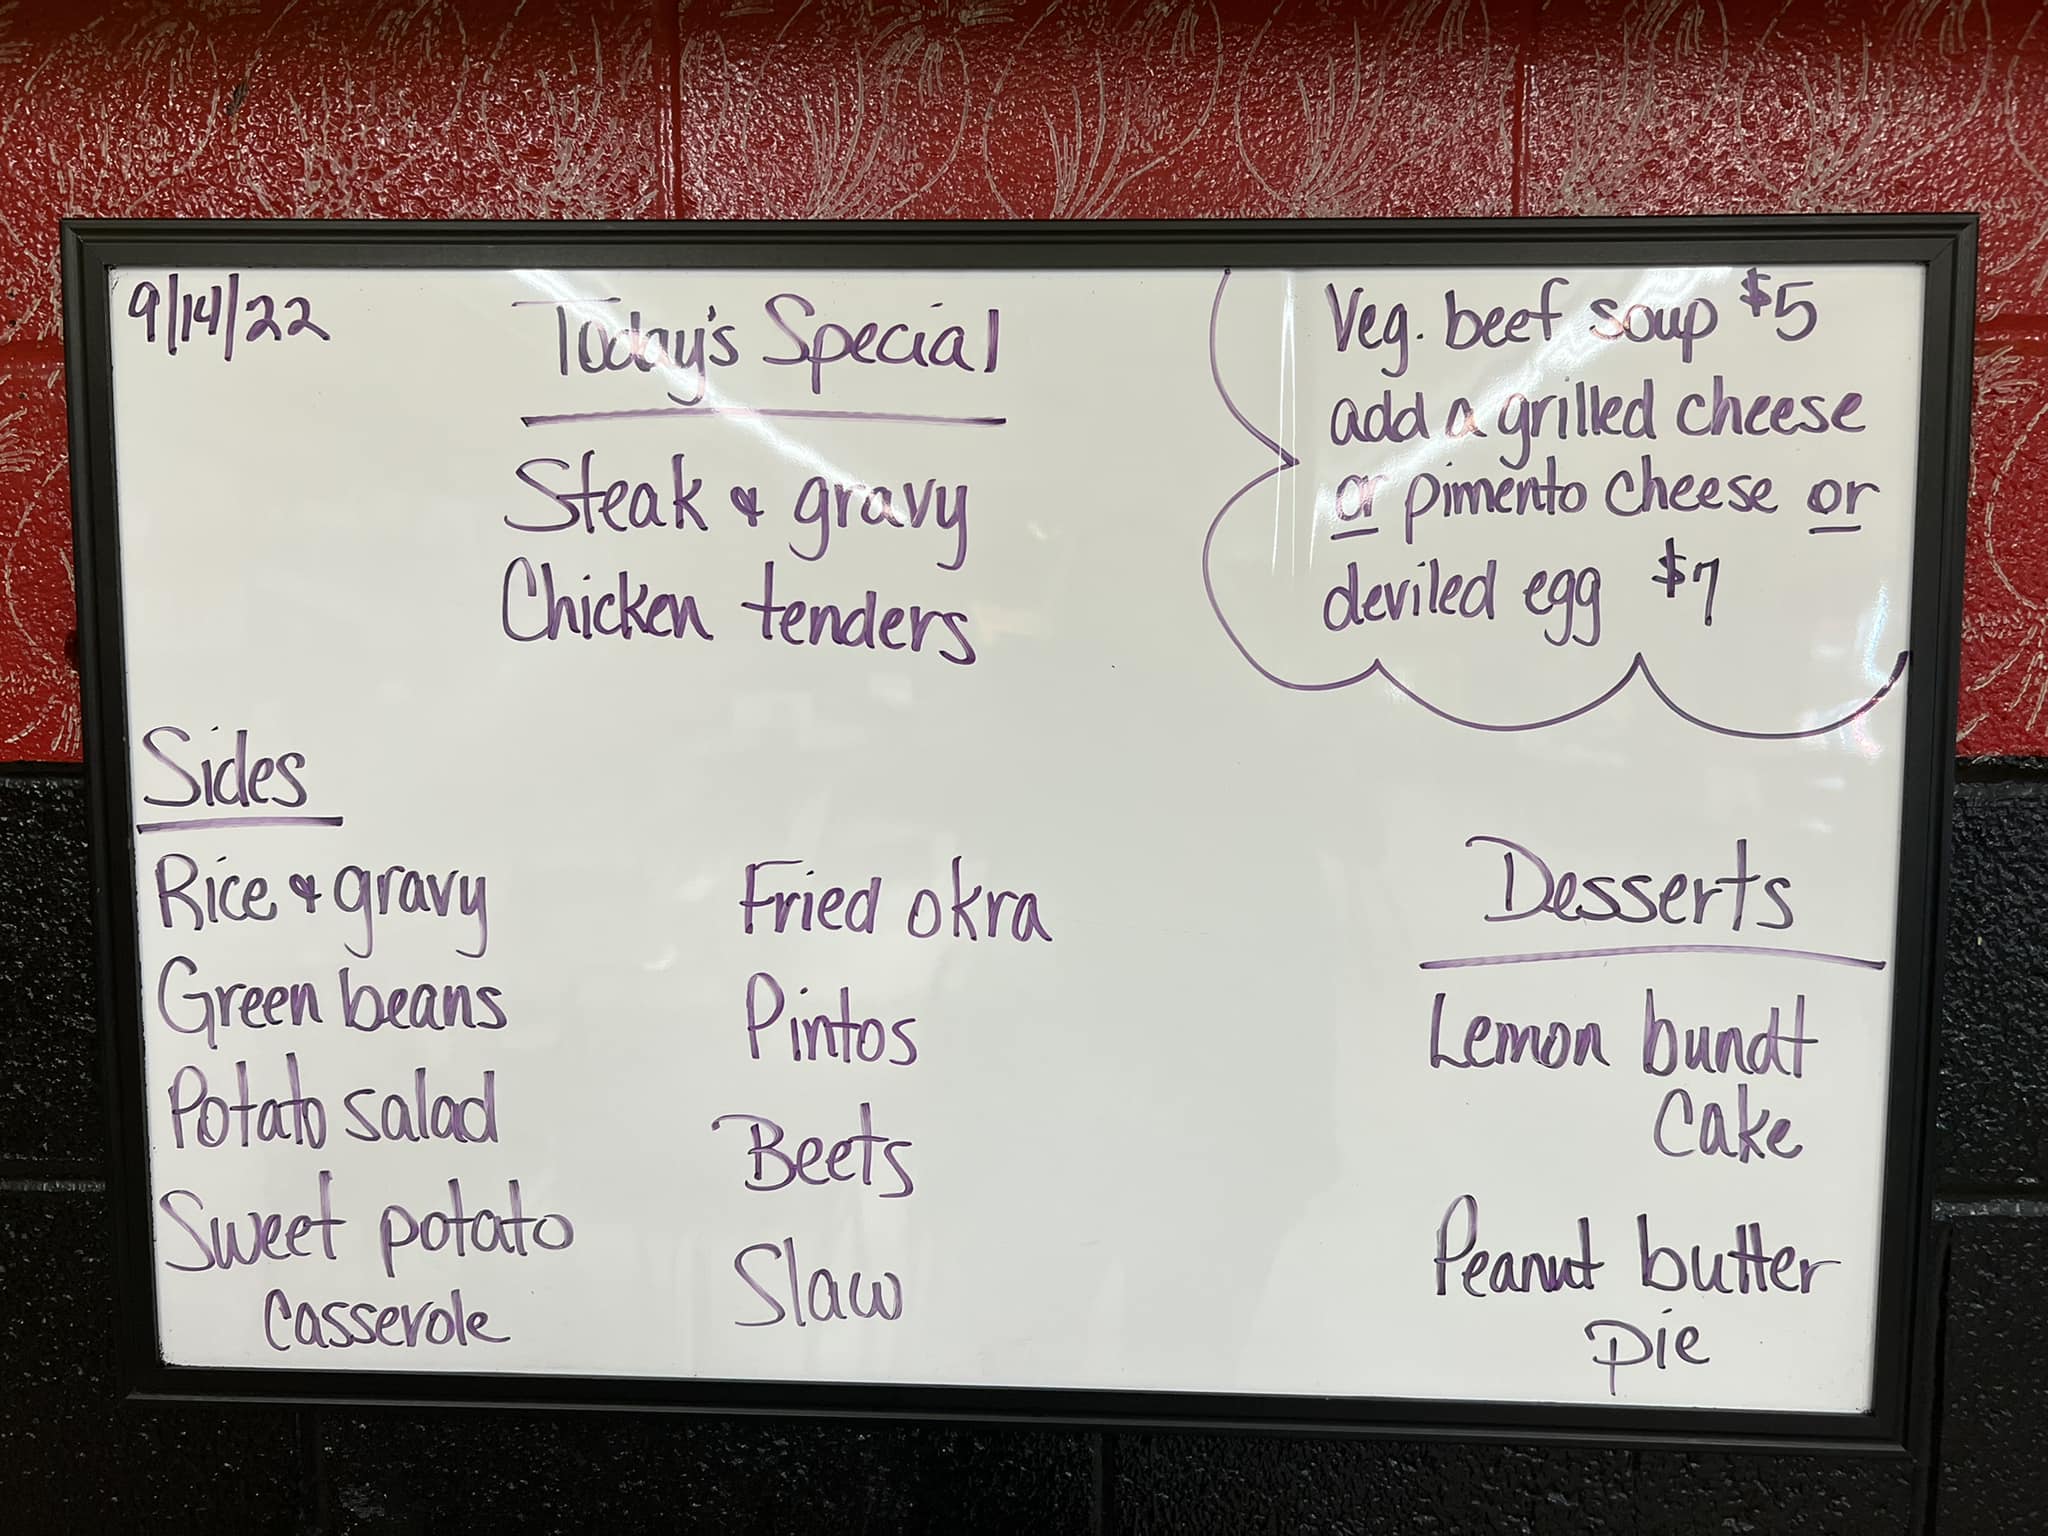 9/14/22
Today's Special
Steak & gravy
Chicken tenders
Veg. beef soup $5
add a grilled cheese
or pimento cheese or
deviled egg $7
Sides
Rice & gravy
Green beans
Potato salad
Sweet potato
casserole
Fried okra
Pintos
Beets
Slaw
Desserts
Lemon bundt
Cake
Peanut butter
pie